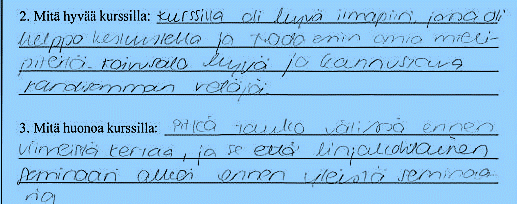 2. Mitä hyvää kurssilla: kurssilla oli hyvä ilmapiiri, jossa oli
helppo keskustella ja tuoda omia mieli-
piteitä. hyvä ja kannustava
vetäjä.
3. Mitä huonoa kurssilla: pitkä tauko välissä ennen
viimeistä kertaa, ja se että linjakohtainen
seminaari alkoi ennen yleistä seminaa-
ria